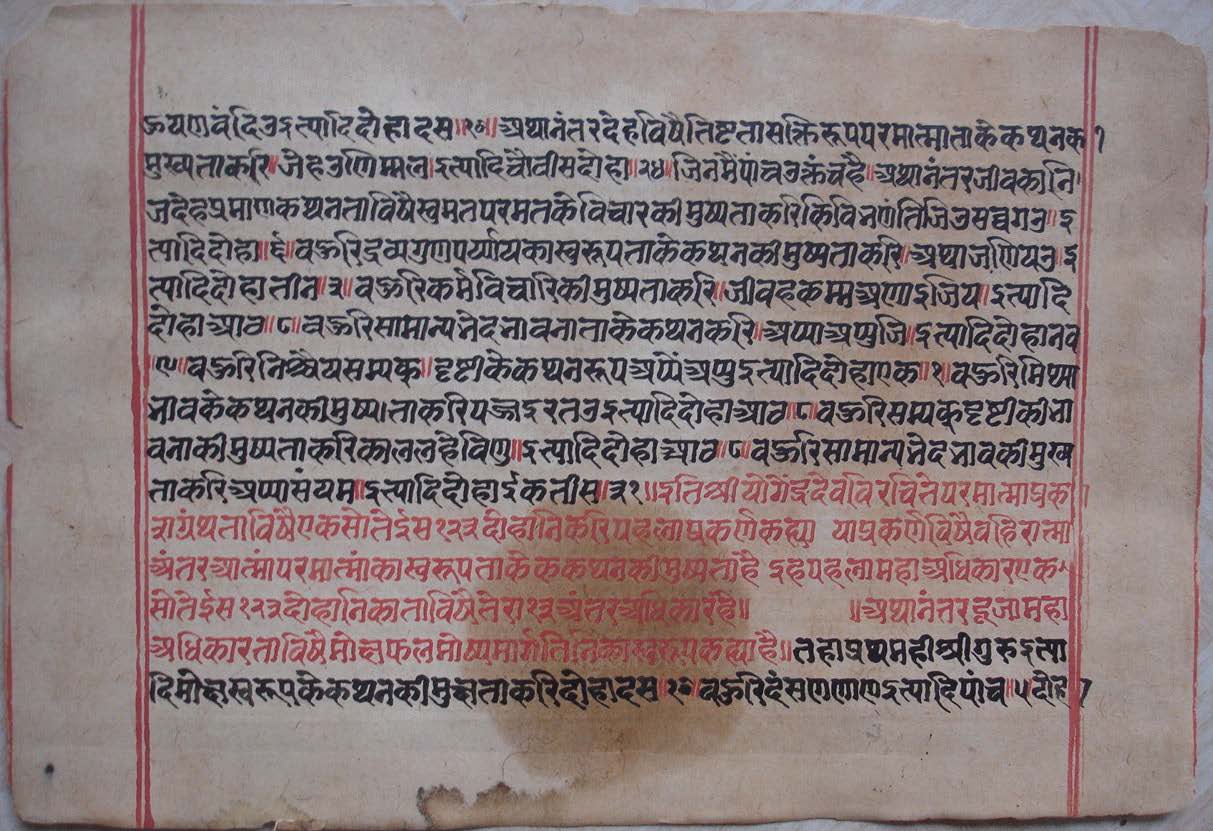 ऊयणवंदिउइत्यादिदोहादस॥१०॥अथानंतरदेहविषैतिष्टतासक्तिरूपपरमात्माताकेकथनकी
मुख्यताकरि॥जेहउणिम्मल॥इत्यादिचौवीसदोहा॥२४॥जिनमैपांचउक्तंचहै॥अथानंतरजीवकानि
जदेहप्रमाणकथनताविषैस्वमतपरमतकेविचारकीमुष्यताकरिकिविभणंतिजिउसव्वगउ॥इ
त्यादिदोहा॥६॥बऊरिद्रव्यगुणपर्य्यायकास्वरूपताकेकथनकीमुष्यताकरि॥अप्पाजणियउ॥इ
त्यादिदोहातीन॥३॥बऊरिकर्मविचारिकीमुष्यताकरि॥जीवहकम्मअणाइजिय॥इत्यादि
दोहाआठ॥८॥बऊरिसामान्यभेदभावनाताकेकथनकरि॥अप्पाअप्पुजि॥इत्यादिदोहानव
॥९॥बऊरिनिश्चैयसम्यक्॥दृष्टीकेकथनरूपअप्पेंअप्पुइत्यादिदोहाएक॥१॥बऊरिमिथ्या
भावकेकथनकीमुष्यताकरिपज्जइरतउइत्यादिदोहाआठ॥८॥बऊरिसम्यक्दृष्टीकीभा
वनाकीमुष्यताकरिकाललहेविणु॥इत्यादिदोहाआठ॥८॥बऊरिसामान्यभेदभावकीमुख्य
ताकरिअप्पासंयम॥इत्यादिदोहाईकतीस॥३१॥इतिश्रीयोगेंद्रदेवविरचितेपरमात्माप्रका
शग्रंथताविषैएकसौतेईस१२३दोहानिकरिपहलाप्रकर्णकह्या याप्रकर्णविषैवहिरात्मा
अंतरआत्मांपरमात्मांकास्वरूपताकेकथनकीमुष्यताहै इहपहलामहाअधिकारएक
सौतेईस१२३दोहानिकाताविषैतेरा१३अंतरअधिकारहै॥ ॥अथानंतरदूजामहा
अधिकारताविषैमोक्षफलमोष्यमार्गतिनिकास्वरूपकह्याहै॥तहाप्रथमहीश्रीगुरुइत्या
दिमोक्षस्वरूपकेकथनकीमुख्यताकरिदोहादस॥१०॥बऊरिदंसणणाणइत्यादिपांच॥५दोहा